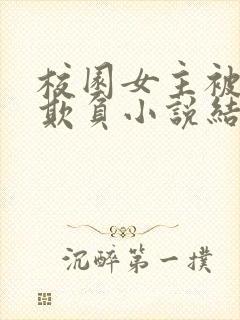 校園女主被
欺負小說結
沉醉第一撲